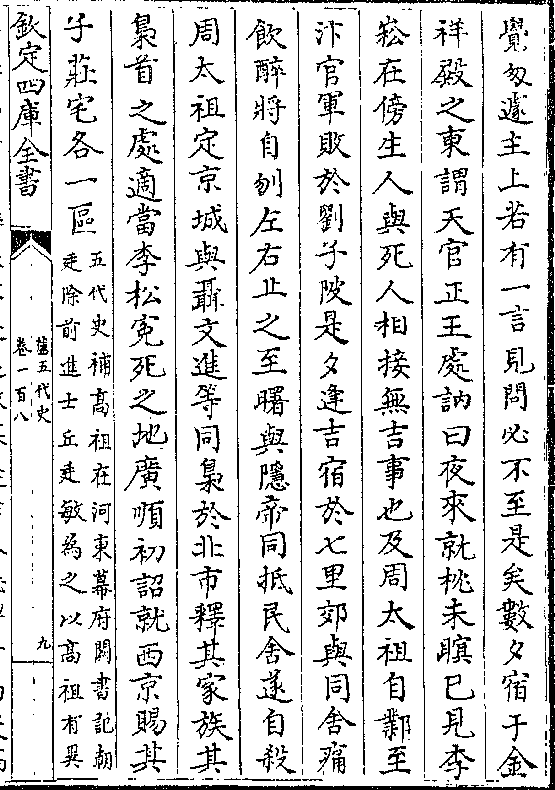 覺匆遽主上若有一言見問必不至是矣數夕宿于金
祥殿之東謂天官正王處訥曰夜來就枕未瞑已見李
崧在傍生人與死人相接無吉事也及周太祖自鄴至
汴官軍敗於劉子陂是夕逢吉宿於七里郊與同舍痛
飲醉將自刎左右止之至曙與隱帝同抵民舍遂自殺
周太祖定京城與聶文進等同梟於北市釋其家族其
梟首之處適當李松寃死之地廣順初詔就西京賜其
子莊宅各一區
五代史補高祖在河東幕府闕書記朝
廷除前進士丘廷敏為之以高祖有異
欽定四庫全書
舊五代史
卷一百八
九